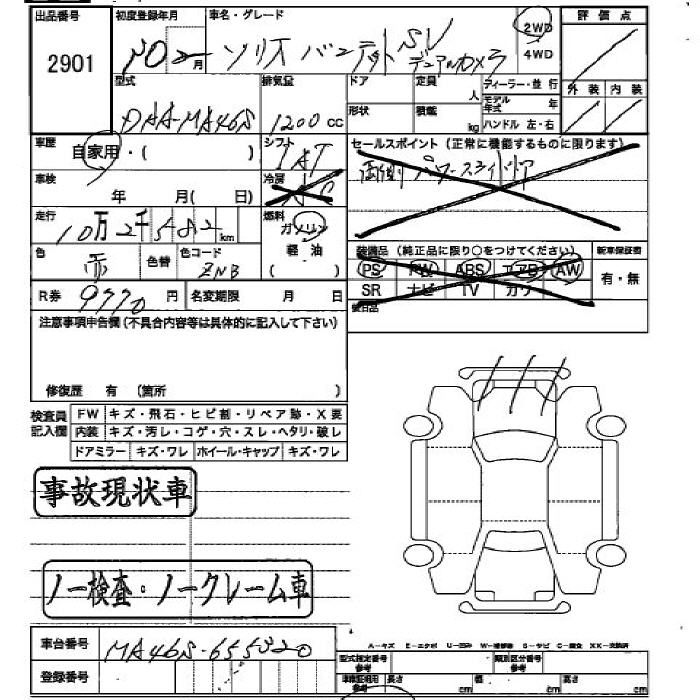 出品番号 初度登録年月 車名・グレード 2WD 評価点
2901 月 ソリオ バンディット SV デュアルカメラ 4WD
型式 排気量 ドア 定員 人 ディーラー・並行 外装 内装
DAA-MA46S 1200 CC 形状 積載 kg モデル年式 年
ハンドル 左・右
車歴 自家用・( ) シフト セールスポイント（正常に機能するものに限ります）
車検 年 月( 日) 冷房
走行 10万2千582 km 燃料 ガソリン
軽油
( )
色 赤 色替 色コード ZNB
装備品（純正品に限り○をつけてください） 新車保証書
PS PW ABS エアB AW 有・無
SR ナビ TV カワ
後日品
R券 9770 円 名変期限 月 日
注意事項申告欄（不具合内容等は具体的に記入して下さい）
修復歴 有 （箇所 ）
検査員記入欄 FW キズ・飛石・ヒビ割・リペア跡・X要
内装 キズ・汚レ・コゲ・穴・スレ・ヘタリ・破レ
ドアミラー キズ・ワレ ホイール・キャップ キズ・ワレ
事故現状車
ノー検査・ノークレーム車
車台番号 MA46S-655320
A-キズ E-エクボ U-凹み W-補修跡 S-サビ C-腐食 XX-交換済
登録番号 型式指定番号 参考 類別区分番号 参考
車庫証明用 参考 長さ cm 幅 cm 高さ cm